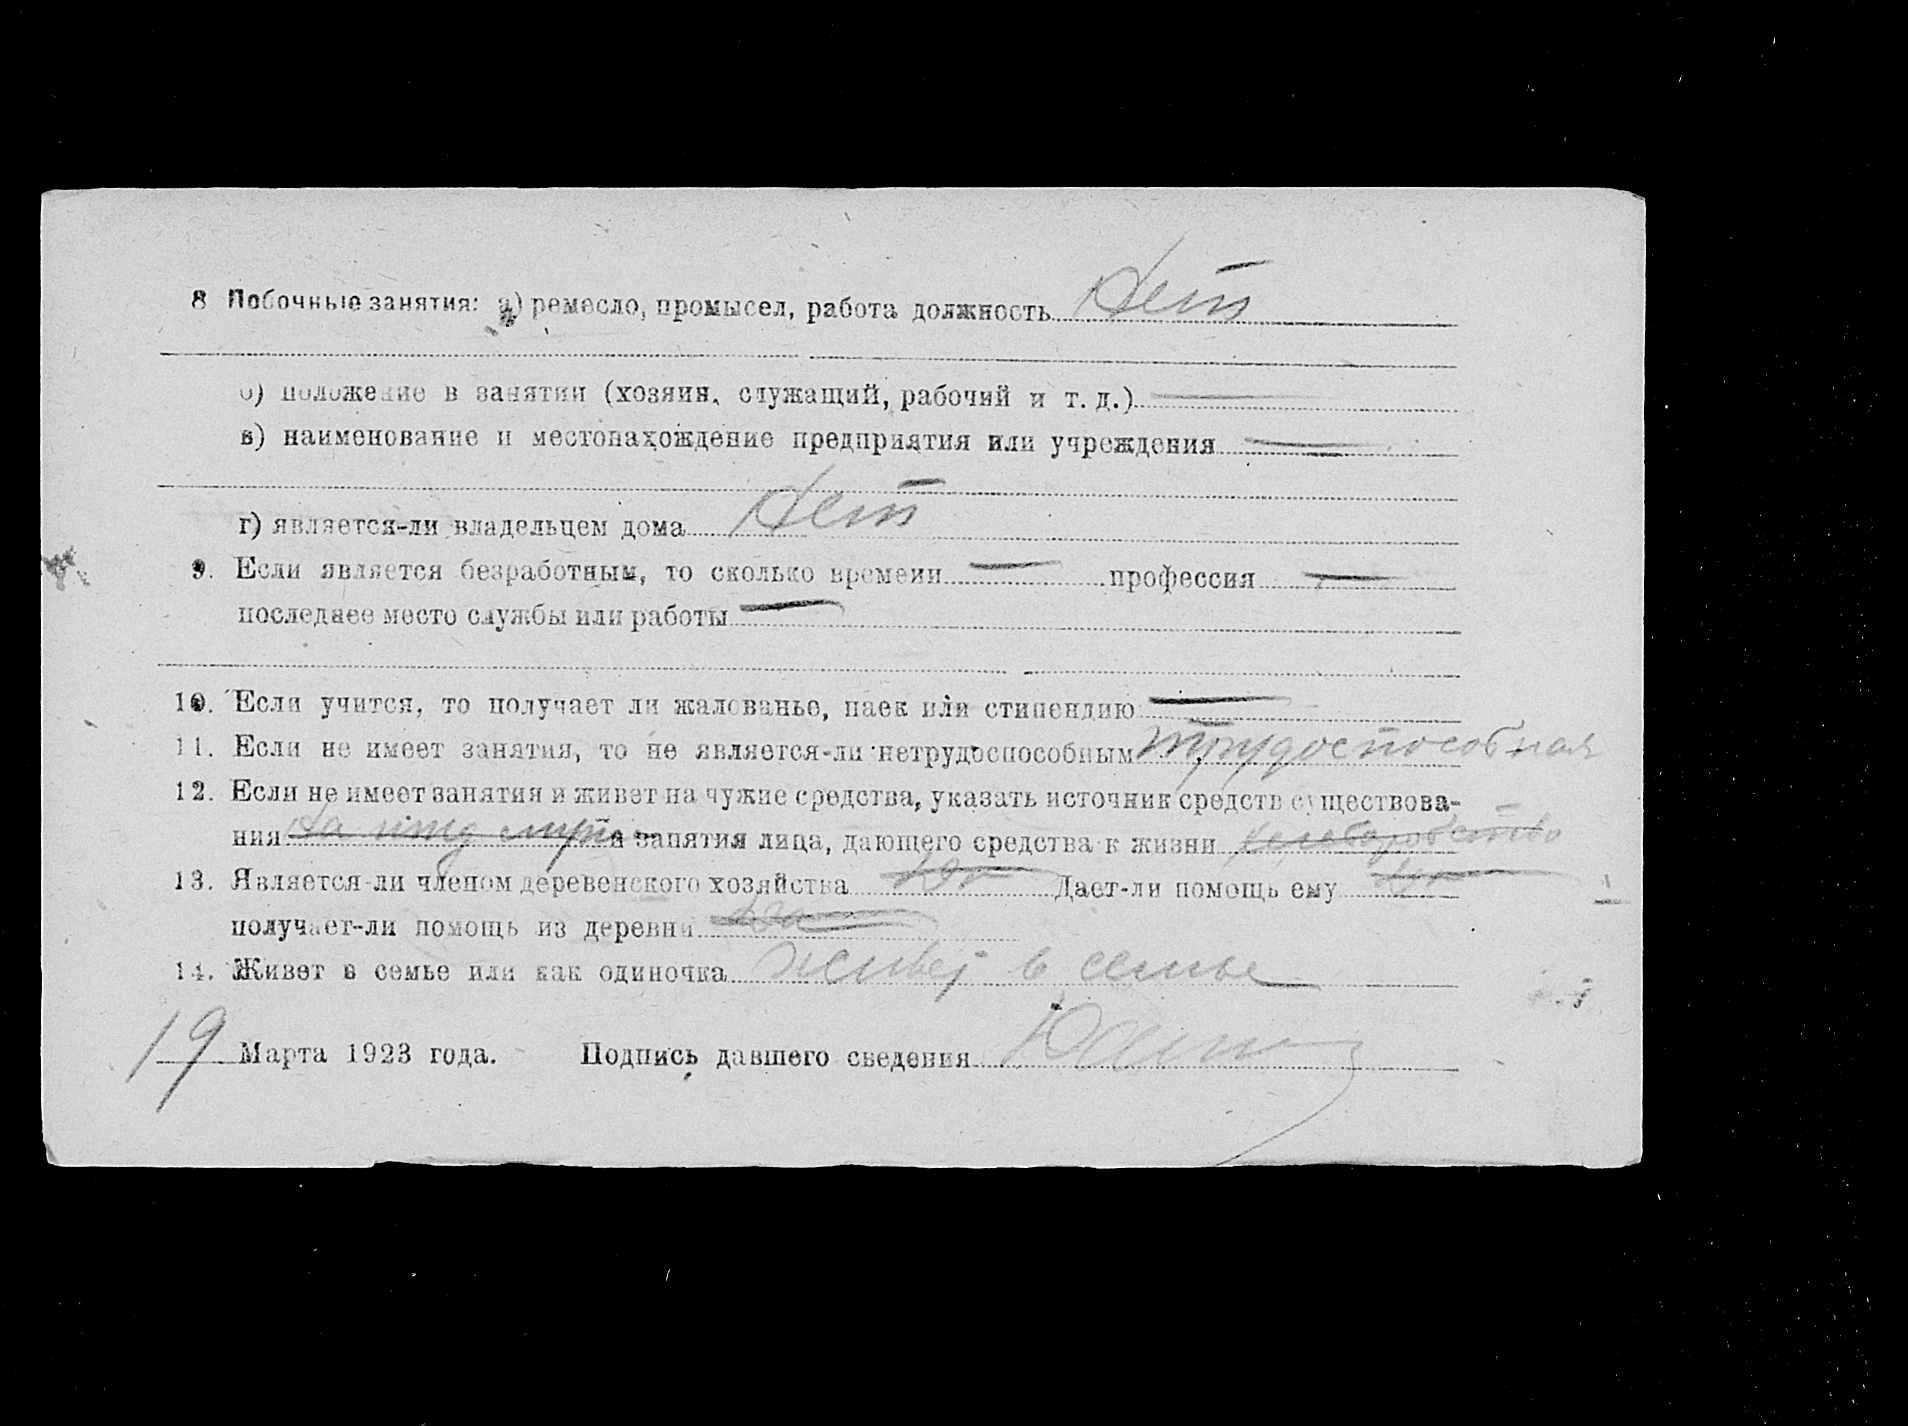 8 Побочные занятия: а) ремесло, промысел, работа должность Нет
б) положение в занятии (хозяин, служащий, рабочий и т. д.) —
в) наименование и местонахождение предприятия или учреждения —
г) является-ли владельцем дома Нет
9. Если является безработным, то сколько времени — профессия —
последнее место службы или работы —
10. Если учится, то получает ли жалованье, паек или стипендию —
11. Если не имеет занятия, то не является-ли нетрудоспособным трудоспособная
12. Если не имеет занятия и живет на чужие средства, указать источник средств существова-
ния На и занятия лица, дающего средства к жизни
13. Является-ли членом деревенского хозяйства Да Дает-ли помощь ему Да
получает-ли помощь из деревни Да
14. Живет в семье или как одиночка живет в семье
19 Марта 1923 года. Подпись давшего сведения